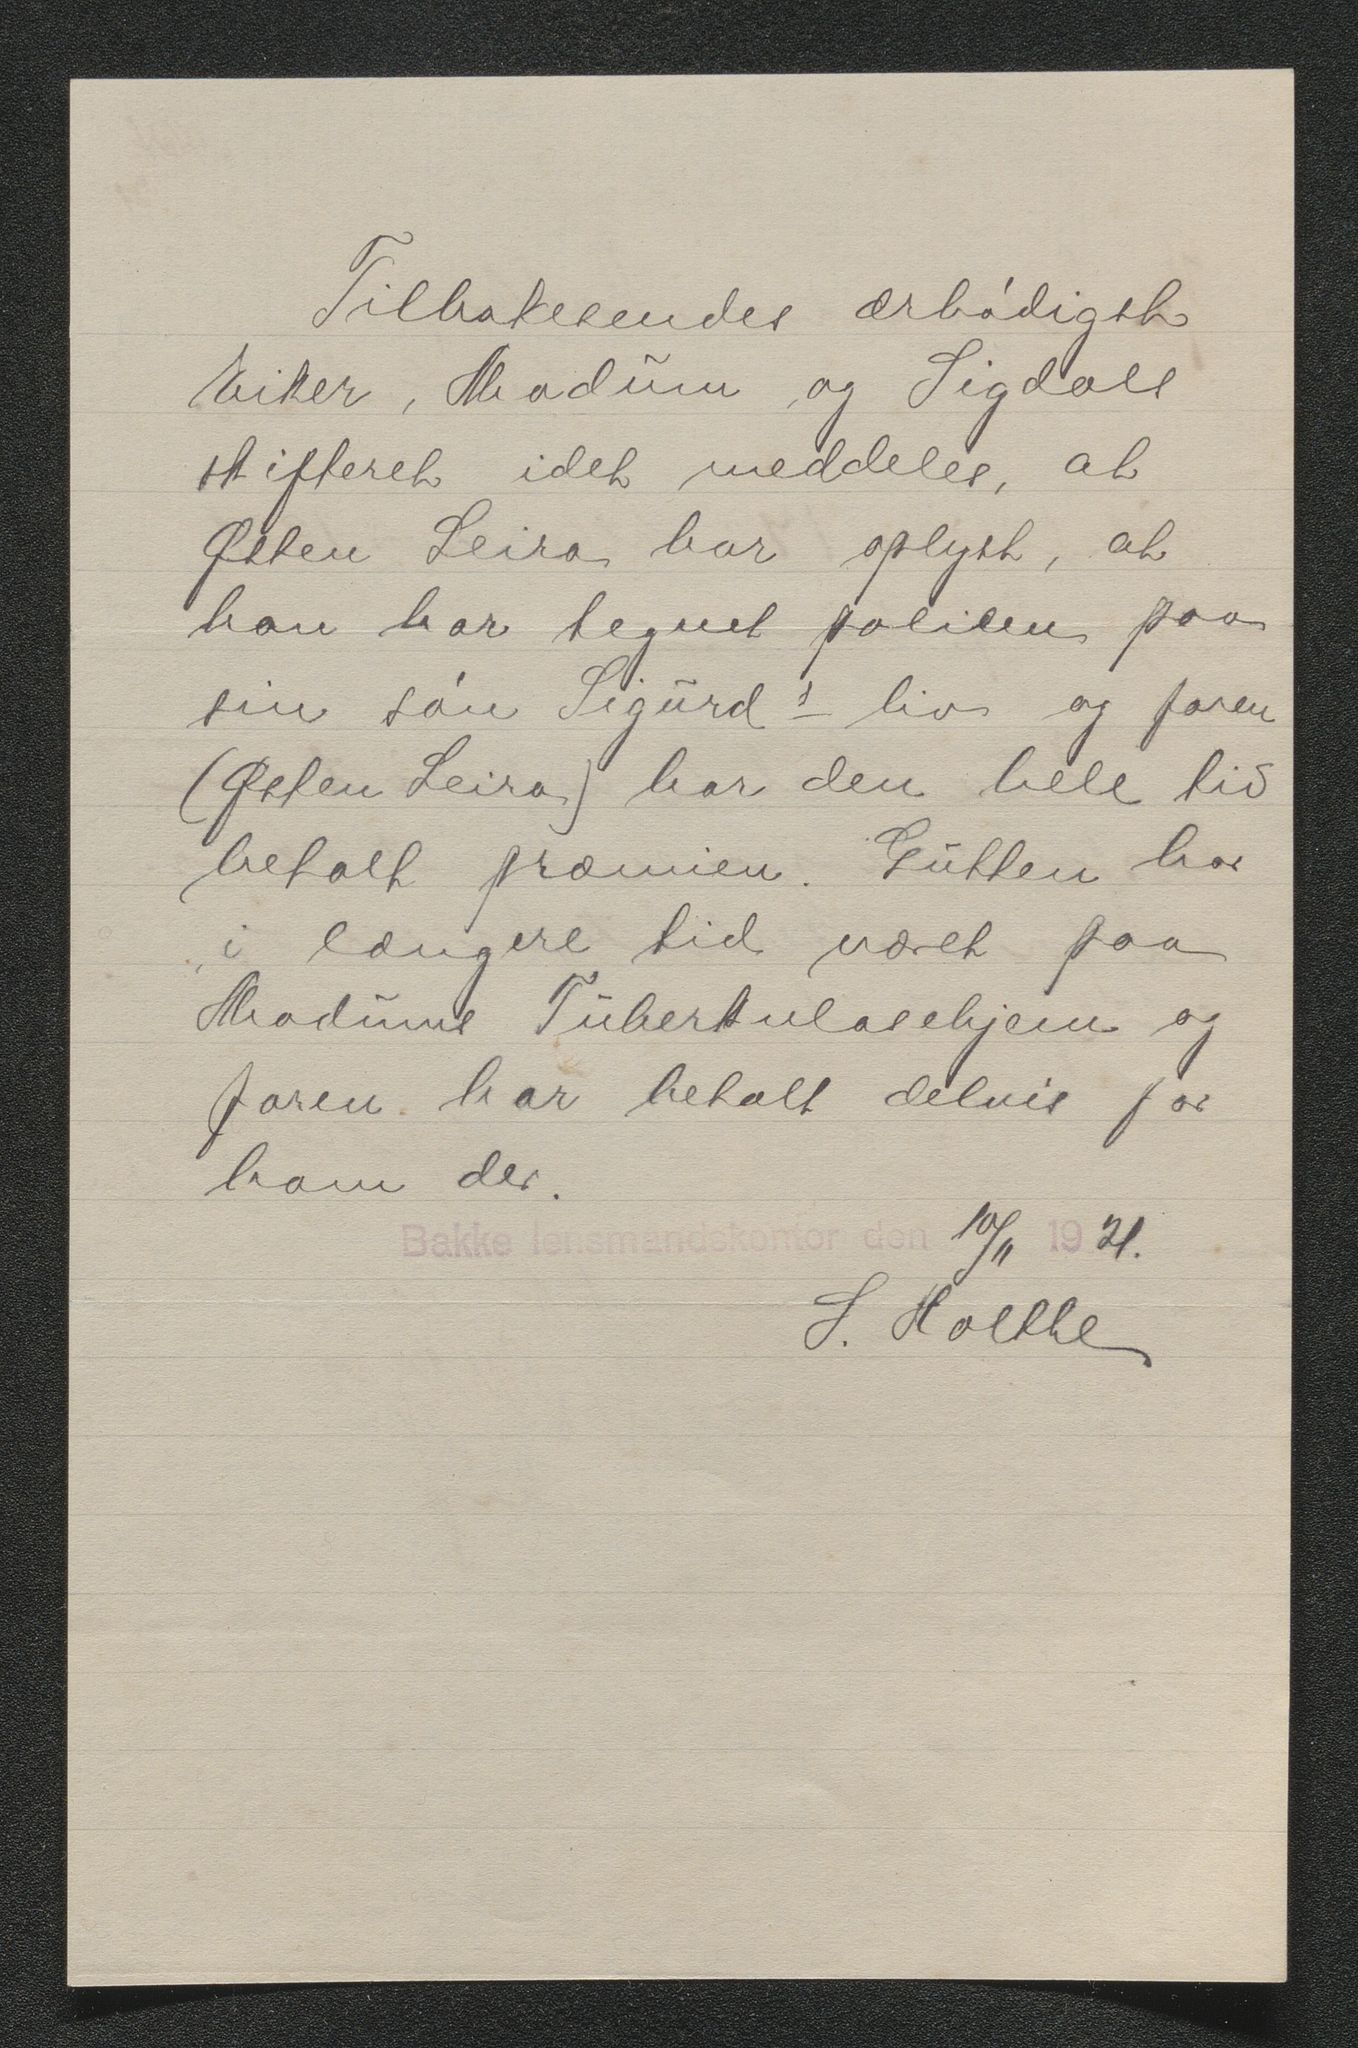 Tilbakesendes ærbódigst
Eiker, Modum og Sigdals
skifteret idet meddeles, at
Østen Leira har oplyst, at
han har tegnet polisen paa
sin són Sigurd's liv og faren
(Østen Leira) har den hele tid
betalt præmien. Gutten har
i længere tid været paa
Modums Tuberkulosehjem og
faren har betalt delvis for
ham der.
Bakke lensmandskontor den 10/11 1921.
S. Holthe